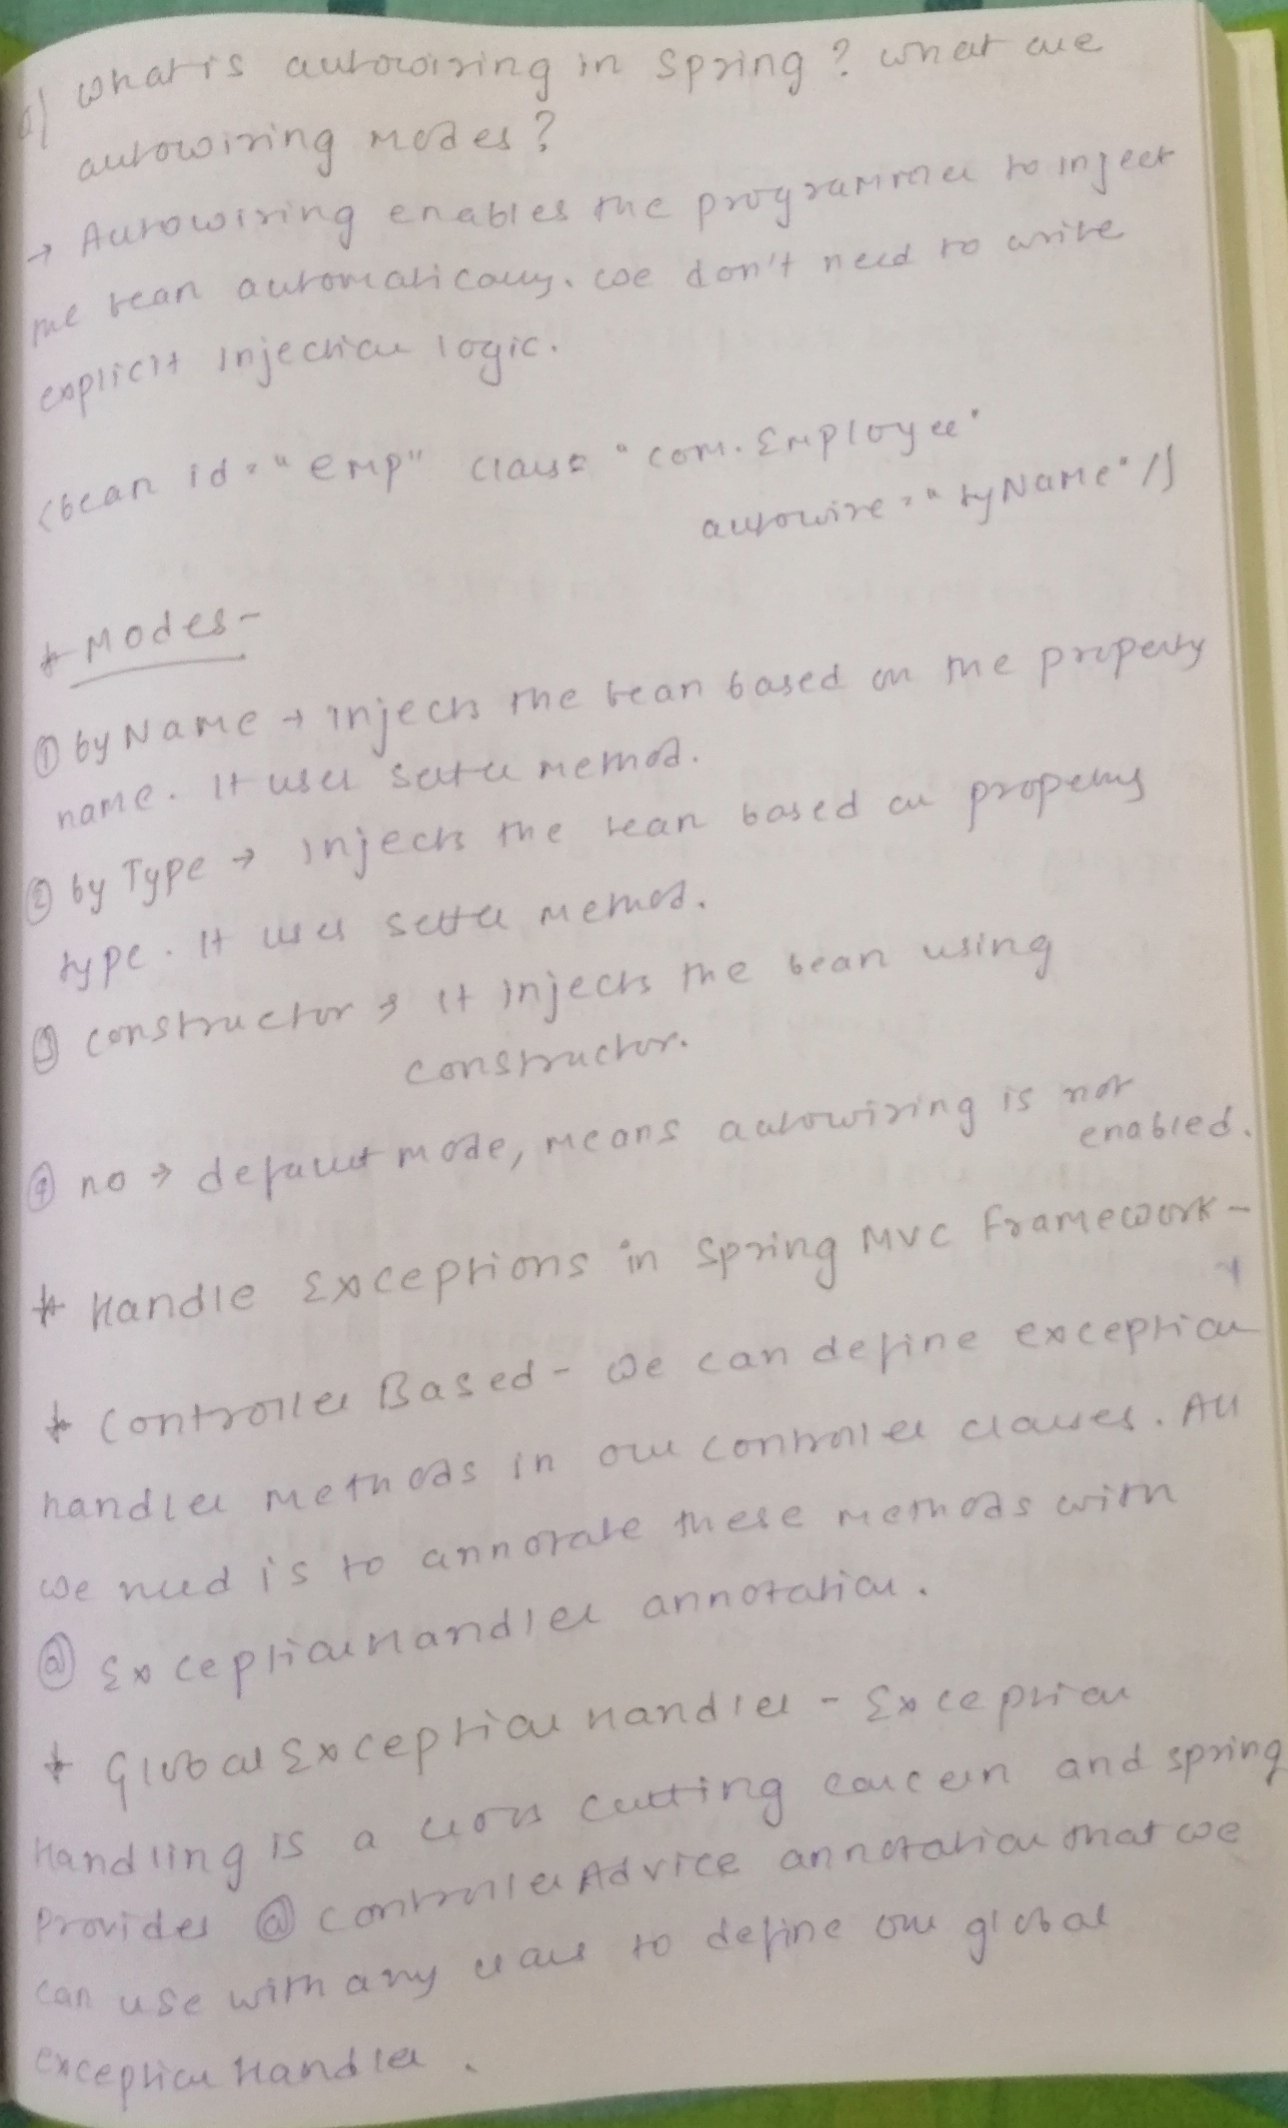 Q) What is autowiring in Spring? What are
autowiring modes?
→ Autowiring enables the programmer to inject
the bean automatically. We don't need to write
explicit injection logic.
<bean id="emp" class="com.Employee"
autowire="byName"/>
* Modes-
① byName → injects the bean based on the property
name. It uses setter method.
② byType → injects the bean based on property
type. It uses setter method.
③ constructor → it injects the bean using
constructor.
④ no → default mode, means autowiring is not
enabled.
* Handle Exceptions in Spring MVC Framework-
* Controller Based - We can define exception
handler methods in our controller classes. All
we need is to annotate these methods with
@ExceptionHandler annotation.
* Global Exception Handler - Exception
Handling is a cross cutting concern and spring
Provides @ControllerAdvice annotation that we
can use with any class to define our global
exception Handler.